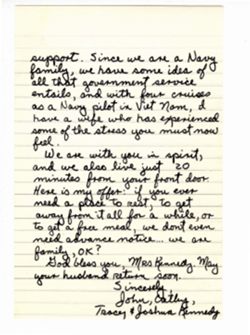 support. Since we are a Navy
family, we have some idea of
all that government service
entails, and with four cruises
as a Navy pilot in Viet Nam, I
have a wife who has experienced
some of the stress you must now
feel.
We are with you in spirit,
and we also live just 20
minutes from your front door
Here is my offer: if you ever
need a place to rest, to get
away from it all for a while, or
to get a free meal, we don't even
need advance notice... we are
family, OK?
God bless you, Mrs Kennedy. May
your husband return soon.
Sincerely,
John, Cathy,
Tracey & Joshua Kennedy